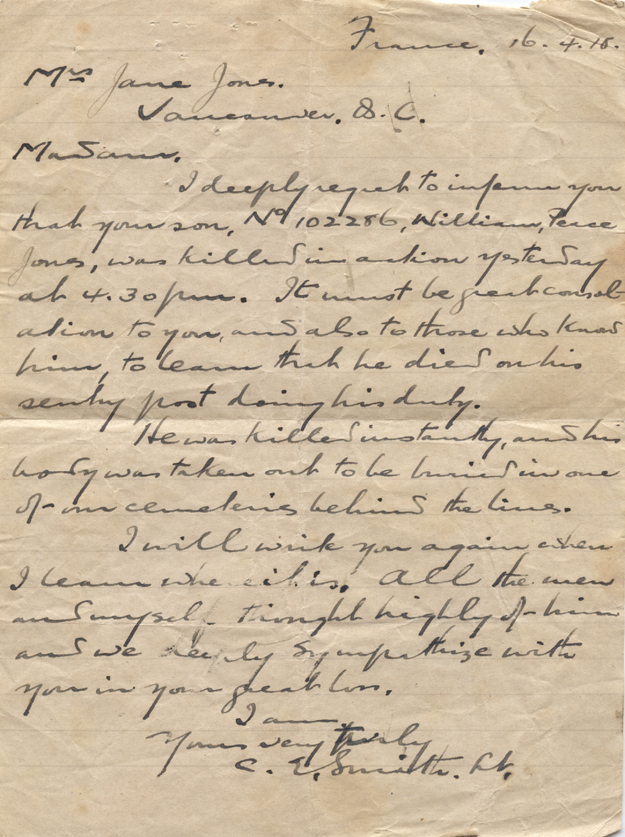 France, 16.4.18.
Mrs Jane Jones.
Vancouver. B.C.
Madam.
I deeply regret to inform you
that your son, No 102286, William, Peace
Jones, was killed in action yesterday
at 4.30 pm. It must be great consol-
ation to you, and also to those who know
him, to learn that he died on his
sentry post doing his duty.
He was killed instantly, and his
body was taken out to be buried in one
of our cemeteries behind the lines.
I will write you again when
I learn where it is. All the men
and myself thought highly of him
and we deeply sympathize with
you in your great loss.
I am.
Yours very truly
C. E. Smith. Lt.